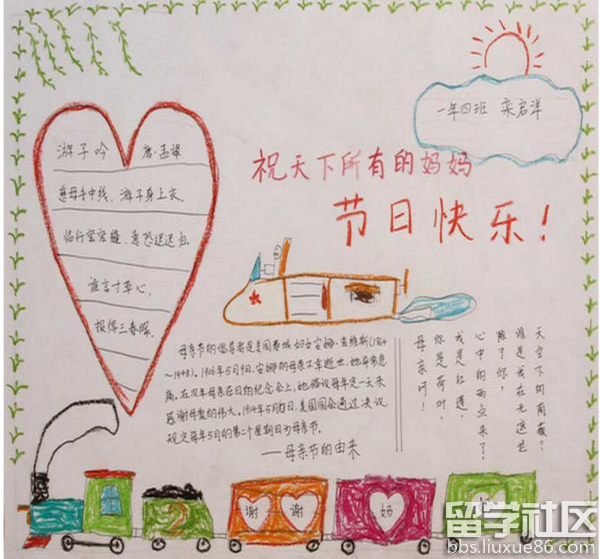 一年四班 栾启洋
祝天下所有的妈妈
节日快乐！
游子吟 唐·孟郊
慈母手中线，游子身上衣。
临行密密缝，意恐迟迟归。
谁言寸草心，
报得三春晖。
母亲节的倡导者是美国费城妇女安娜·查维斯(1864
~1948)。1906年5月9日，安娜的母亲不幸逝世，她万分悲
痛。在次年母亲忌日的纪念会上，她倡议每年定一天来
感谢母爱的伟大。1914年5月日，美国国会通过决议
规定每年5月的第二个星期日为母亲节。
——母亲节的由来
天空下的荫蔽？
谁是我在无遮拦
除了你，
心中的雨点来了，
我是红莲，
你是荷叶，
母亲呵！
谢 谢 妈
2
留学社区
bbs.liuxue86.com